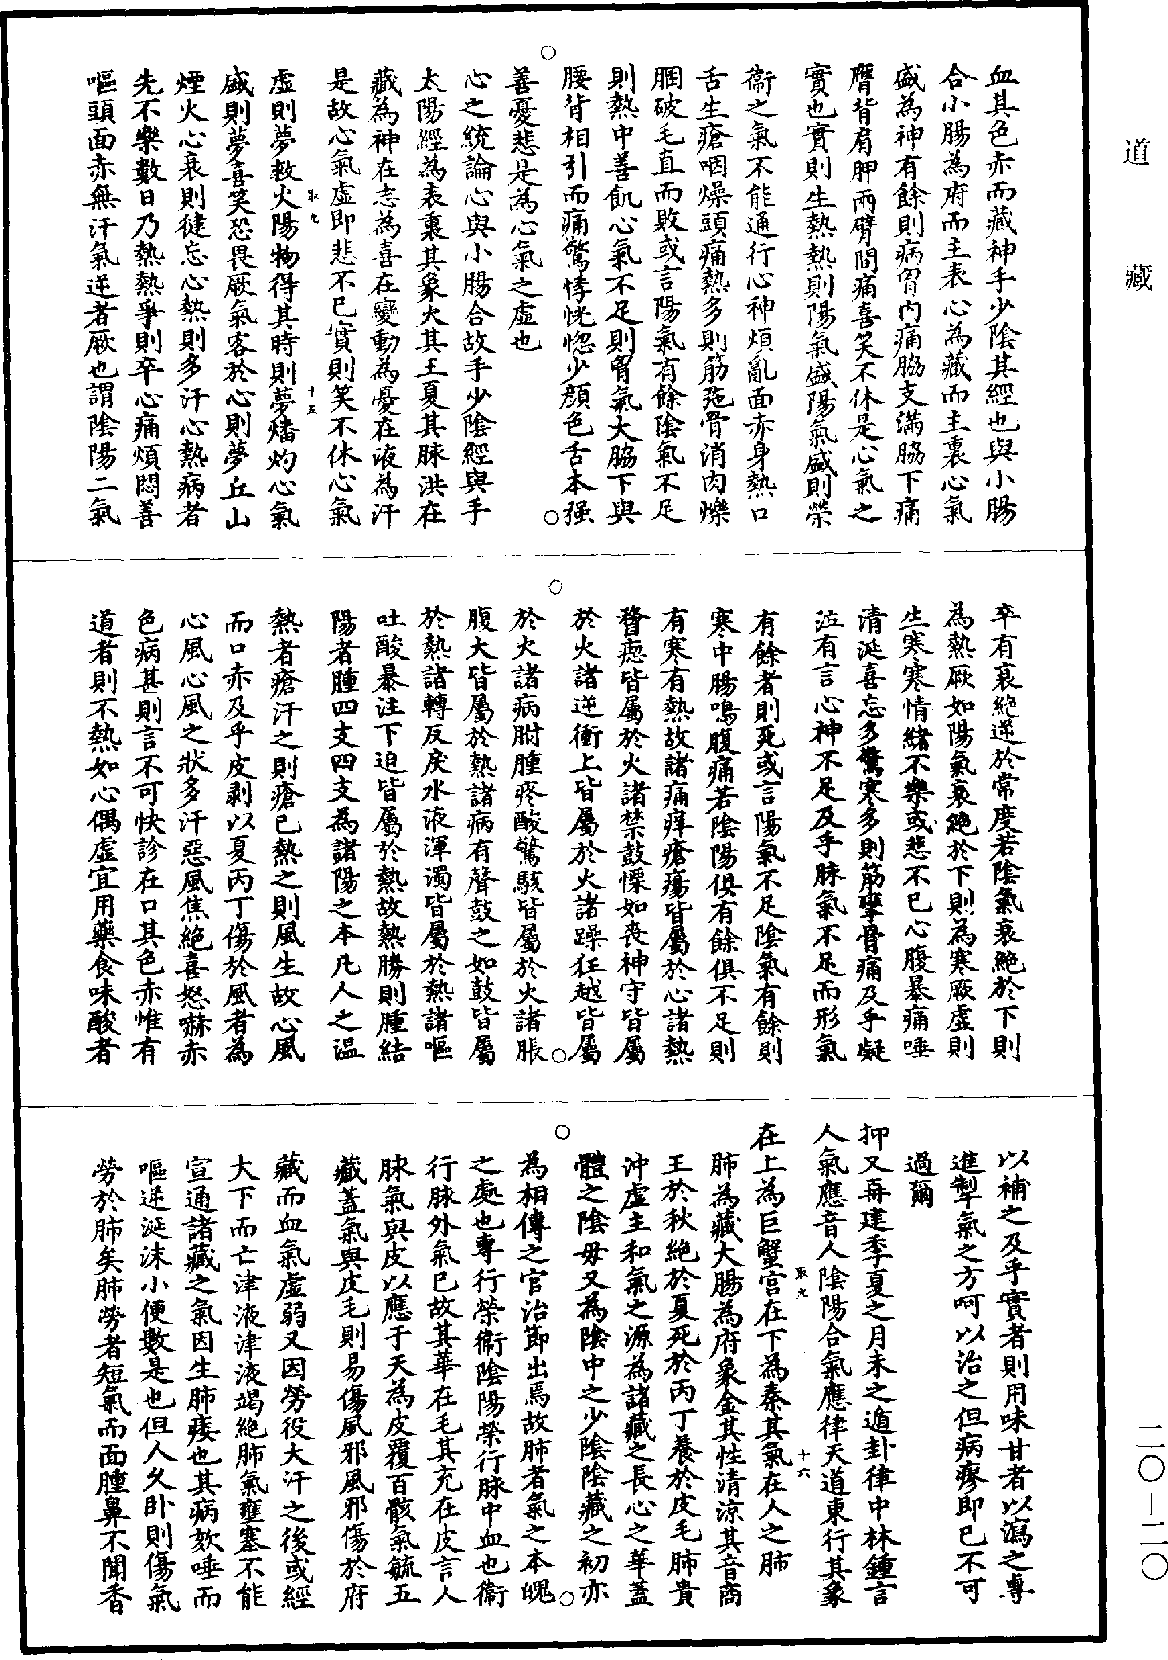 道藏
血其色赤而藏神手少陰其經也與小腸
合小腸為府而主表心為藏而主裏心氣
盛為神有餘則病胷內痛脇支滿脇下痛
膺背肩胛兩臂間痛喜笑不休是心氣之
實也實則生熱熱則陽氣盛陽氣盛則榮
衞之氣不能通行心神煩亂面赤身熱口
舌生瘡咽燥頭痛熱多則筋㢮骨消肉爍
䐃破毛直而敗或言陽氣有餘陰氣不足
則熱中善飢心氣不足則胷氣大脇下與
腰背相引而痛驚悸恍惚少顏色舌本强
善憂悲是為心氣之虛也
心之統論心與小腸合故手少陰經與手
太陽經為表裏其象火其王夏其脉洪在
藏為神在志為喜在變動為憂在液為汗
是故心氣虛即悲不已實則笑不休心氣
虛則夢救火陽物得其時則夢燔灼心氣
盛則夢喜笑恐畏厥氣客於心則夢丘山
煙火心衰則健忘心熱則多汗心熱病者
先不樂數日乃熱熱爭則卒心痛煩悶善
嘔頭面赤無汗氣逆者厥也謂陰陽二氣
卒有衰絶逆於常度若陰氣衰絶於下則
為熱厥如陽氣衰絶於下則為寒厥虛則
生寒寒情緒不樂或悲不已心腹暴痛唾
清涎喜忘多驚寒多則筋攣骨痛及乎凝
泣有言心神不足及乎脉氣不足而形氣
有餘者則死或言陽氣不足陰氣有餘則
寒中腸鳴腹痛若陰陽俱有餘俱不足則
有寒有熱故諸痛痒瘡瘍皆屬於心諸熱
瞀瘛皆屬於火諸禁鼓慄如喪神守皆屬
於火諸逆衝上皆屬於火諸躁狂越皆屬
於火諸病胕腫疼酸驚駭皆屬於火諸脹
腹大皆屬於熱諸病有聲鼓之如鼓皆屬
於熱諸轉反戾水液渾濁皆屬於熱諸嘔
吐酸暴注下迫皆屬於熱故熱勝則腫結
陽者腫四支四支為諸陽之本凡人之温
熱者瘡汗之則瘡已熱之則風生故心風
而口赤及乎皮剥以夏丙丁傷於風者為
心風心風之狀多汗惡風焦絶喜怒嚇赤
色病甚則言不可快診在口其色赤惟有
道者則不熱如心偶虛宜用藥食味酸者
以補之及乎實者則用味甘者以瀉之專
進掣氣之方呵以治之但病瘳即已不可
過爾
抑又再建季夏之月未之遁卦律中林鍾言
人氣應音人陰陽合氣應律天道東行其象
在上為巨蟹宫在下為秦其氣在人之肺
肺為藏大腸為府象金其性清涼其音商
王於秋絶於夏死於丙丁養於皮毛肺貴
沖虛主和氣之源為諸藏之長心之華蓋
體之陰毋又為陰中之少陰陰藏之初亦
為相傳之官治節出焉故肺者氣之本魄
之處也專行榮衞陰陽榮行脉中血也衞
行脉外氣巳故其華在毛其充在皮言人
脉氣與皮以應于天為皮覆百骸氣毓五
藏蓋氣與皮毛則易傷風邪風邪傷於府
藏而血氣虛弱又因勞役大汗之後或經
大下而亡津液津液竭絶肺氣壅塞不能
宣通諸藏之氣因生肺痿也其病欬唾而
嘔逆涎沫小便數是也但人久卧則傷氣
勞於肺矣肺勞者短氣而面腫鼻不聞香
取九
十五
取九
十六
二〇－二一〇